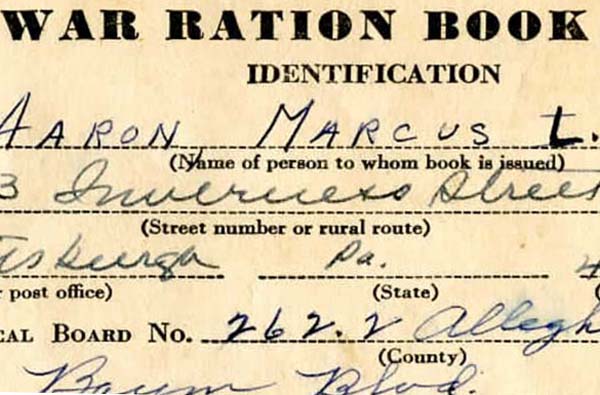 WAR RATION BOOK
IDENTIFICATION
AARON MARCUS L.
(Name of person to whom book is issued)
3 Inverness Street
(Street number or rural route)
tsburgh Pa. 4
post office) (State) (
CAL BOARD No. 262.2 Allegh
(County)
Baum Blvd.